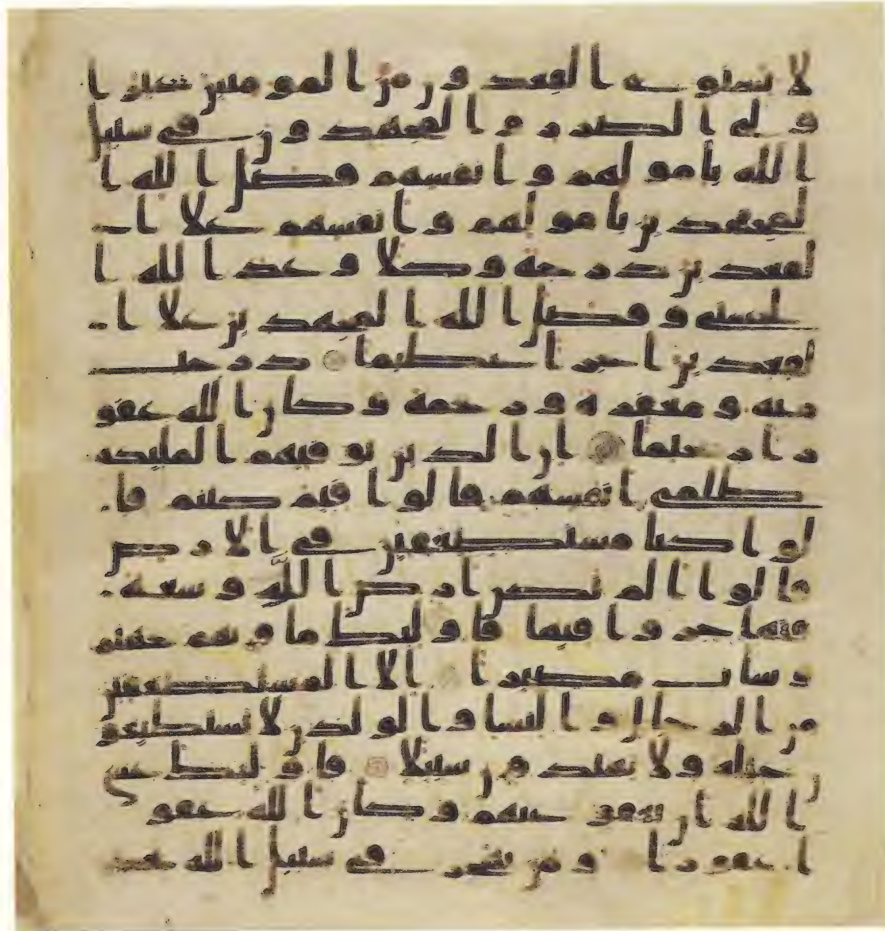 لا يستوى القعدون من المومنين غير ا
ولى الضرر و المجهدون فى سبيل
الله بامولهم و انفسهم فضل الله ا
لمجهدين بامولهم و انفسهم على ا
لقعدين درجة و كلا وعد الله ا
لحسنى و فضل الله المجهدين على ا
لقعدين اجرا عظيما درجت
منه و مغفرة و رحمة و كان الله غفو
را رحيما ان الذين توفيهم المليكه
ظلمى انفسهم قالوا فيم كنتم قا
لوا كنا مستضعفين فى الارض
قالوا الم تكن ارض الله وسعة
فتهاجروا فيها فاوليك ماويهم جهنم
و سات مصيرا الا المستضعفين
من الرجال و النسا و الولدن لا يستطيعو
ن حيلة و لا يهتدون سبيلا فاوليك عسى
الله ان يعفو عنهم و كان الله عفو
ا غفورا و من يهجر فى سبيل الله يجد